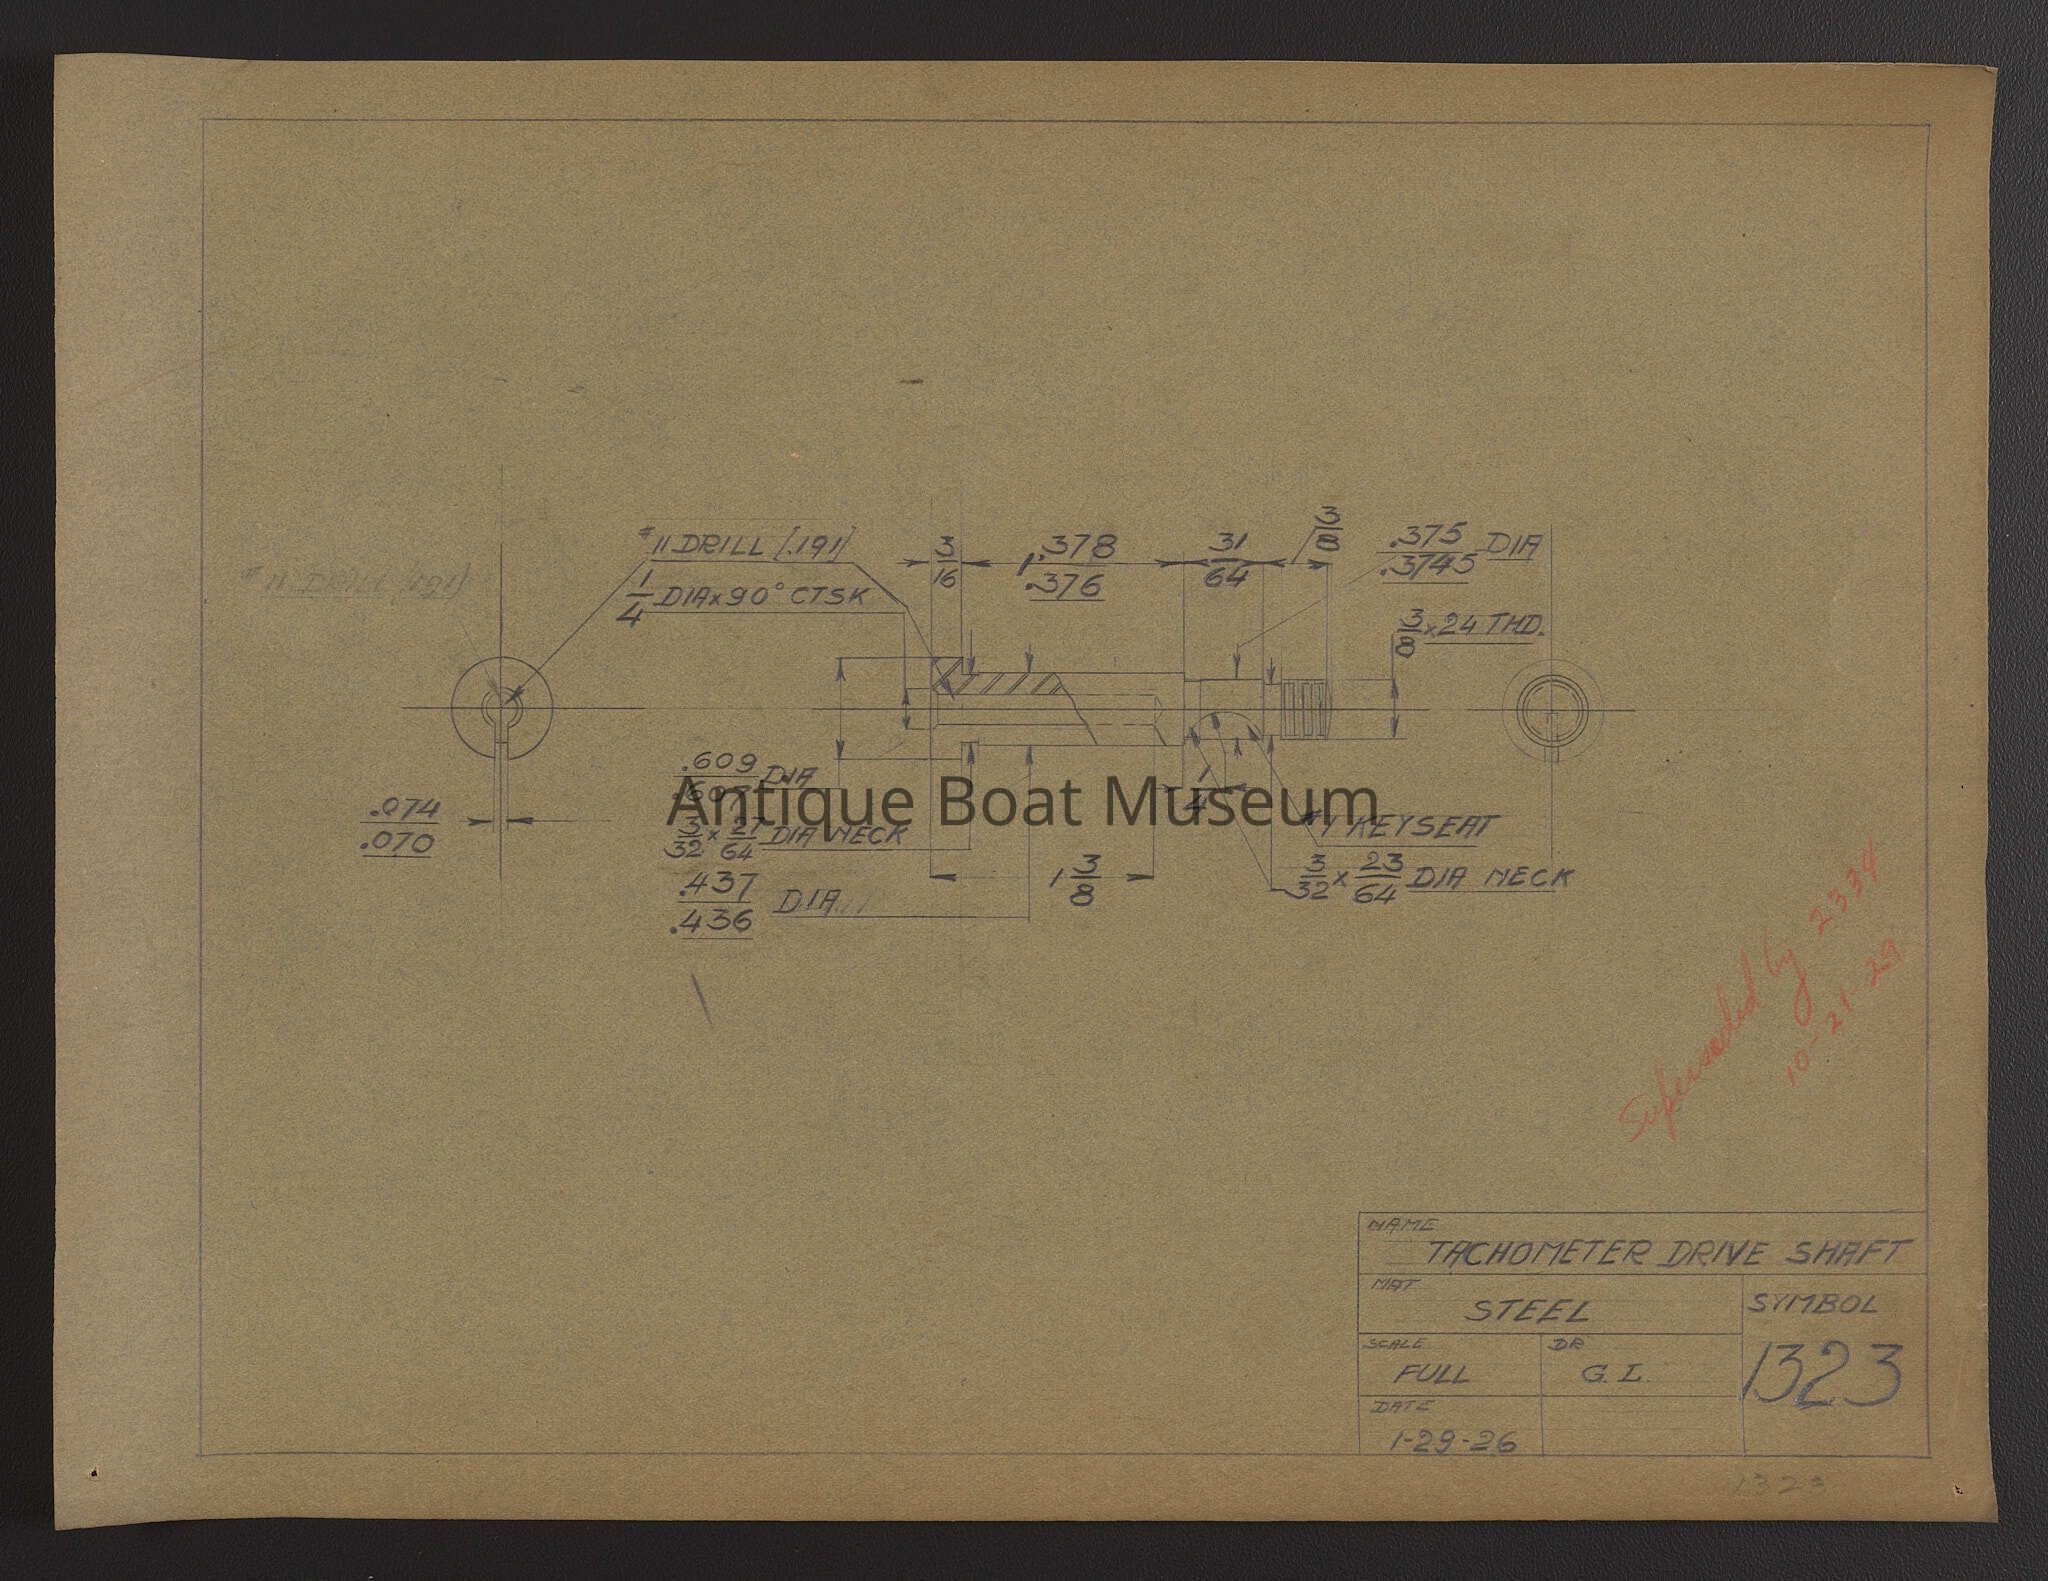 #11 DRILL (.191)
1/4 DIA x 90° CTSK
#11 DRILL (.191)
3/16
1.378
.376
31/64
3/8
.375
.3745 DIA
3/8 x 24 THD.
.074
.070
.609
.607 DIA
3/32 x 27/64 DIA NECK
.437
.436 DIA
1 3/8
1/4
#1 KEYSEAT
3/32 x 23/64 DIA NECK
Antique Boat Museum
Superseded by 2334
10-21-29
NAME
TACHOMETER DRIVE SHAFT
MAT
STEEL
SYMBOL
1323
SCALE
FULL
DR
G. L.
DATE
1-29-26
1323